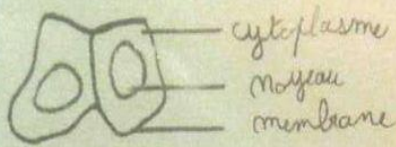 cytoplasme
noyeau
membrane